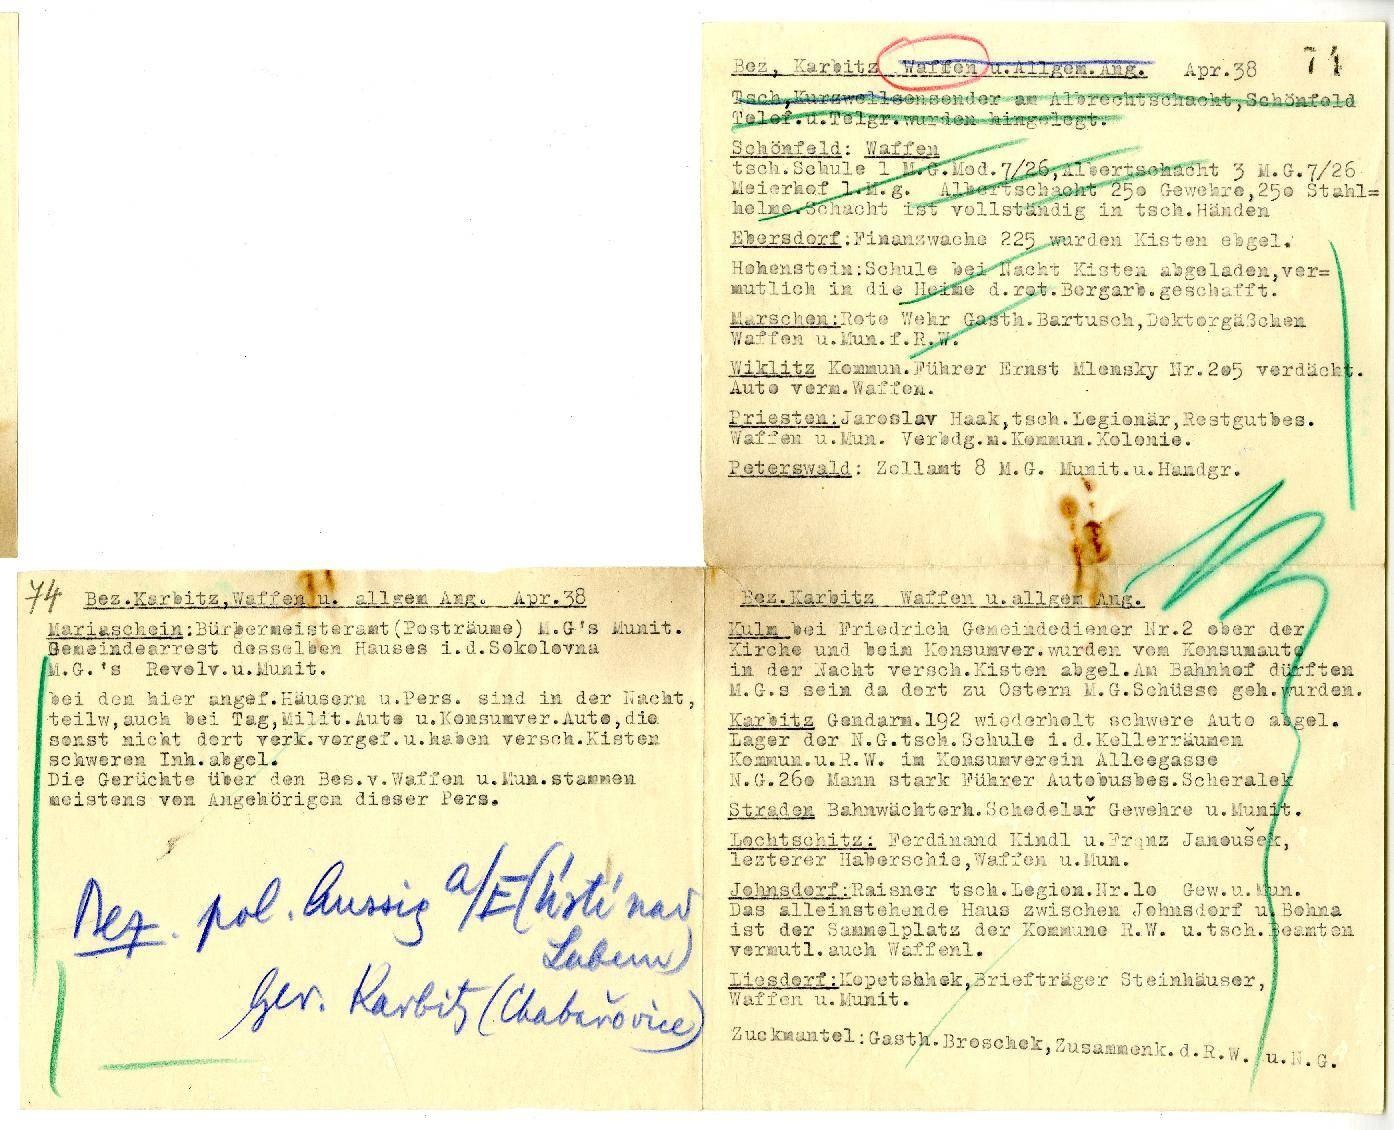 Bez, Karbitz Waffen u.Allgem.Ang. Apr.38 74
Tsch,Kurzwellsensender am Albrechtschacht,Schönfeld
Telef.u.Telgr.wurden hingelegt.
Schönfeld: Waffen
tsch.Schule 1 M.G.Mod.7/26,Albertschacht 3 M.G.7/26
Meierhof 1.M.g. Albertschacht 25o Gewehre,25o Stahl=
helme.Schacht ist vollständig in tsch.Händen
Ebersdorf:Finanzwache 225 wurden Kisten abgel.
Hohenstein:Schule bei Nacht Kisten abgeladen,ver=
mutlich in die Heime d.rot.Bergarb.geschafft.
Marschen:Rote Wehr Gasth.Bartusch,Doktorgäßchen
Waffen u.Mun.f.R.W.
Wiklitz Kommun.Führer Ernst Mlensky Nr.2o5 verdächt.
Auto verm.Waffen.
Priesten:Jaroslav Haak,tsch.Legionär,Restgutbes.
Waffen u.Mun. Verbdg.m.Kommun.Kolonie.
Peterswald: Zollamt 8 M.G. Munit.u.Handgr.
74 Bez.Karbitz,Waffen u. allgem Ang. Apr.38
Mariaschein:Bürbermeisteramt(Posträume) M.G's Munit.
Gemeindearrest desselben Hauses i.d.Sokolovna
M.G.'s Revolv.u.Munit.
bei den hier angef.Häusern u.Pers. sind in der Nacht,
teilw,auch bei Tag,Milit.Auto u.Konsumver.Auto,die
sonst nicht dort verk.vorgef.u.haben versch.Kisten
schweren Inh.abgel.
Die Gerüchte über den Bes.v.Waffen u.Mun.stammen
meistens von Angehörigen dieser Pers.
Bez. pol. Aussig a/E (Ústí nad
Labem)
Ger. Karbitz (Chabařovice)
Bez.Karbitz Waffen u.allgem Ang.
Kulm bei Friedrich Gemeindediener Nr.2 ober der
Kirche und beim Konsumver.wurden vom Konsumauto
in der Nacht versch.Kisten abgel.Am Bahnhof dürften
M.G.s sein da dort zu Ostern M.G.Schüsse geh.wurden.
Karbitz Gendarm.192 wiederholt schwere Auto abgel.
Lager der N.G.tsch.Schule i.d.Kellerräumen
Kommun.u.R.W. im Konsumverein Alleegasse
N.G.26o Mann stark Führer Autobusbes.Scheralek
Straden Bahnwächterh.Schedelař Gewehre u.Munit.
Lochtschitz: Ferdinand Kindl u.Franz Janoušek,
lezterer Haberschie,Waffen u.Mun.
Johnsdorf:Raisner tsch.Legion.Nr.1o Gew.u.Mun.
Das alleinstehende Haus zwischen Johnsdorf u.Bohna
ist der Sammelplatz der Kommune R.W. u.tsch.Beamten
vermutl.auch Waffenl.
Liesdorf:Kopetshhek,Briefträger Steinhäuser,
Waffen u.Munit.
Zuckmantel:Gasth.Broschek,Zusammenk.d.R.W. u.N.G.